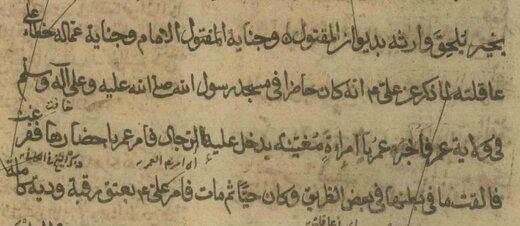 بخير تلحق وارثه بديوان المقتول وجناية المقتول الامام وجناية عماله خطاء على
عاقلته لما ذكر عن علي م انه كان حاضرا في مسجد رسول الله صلى الله عليه وعلى آله وسلم
في ولاية عمر فأخبر عمر بامراة مغيبة يدخل عليها الرجال فامر عمر باحضارها ففزعت
فالقت ما في بطنها في بعض الطريق وكان حيا ثم مات فامر علي م بعتق رقبة ودية كاملة